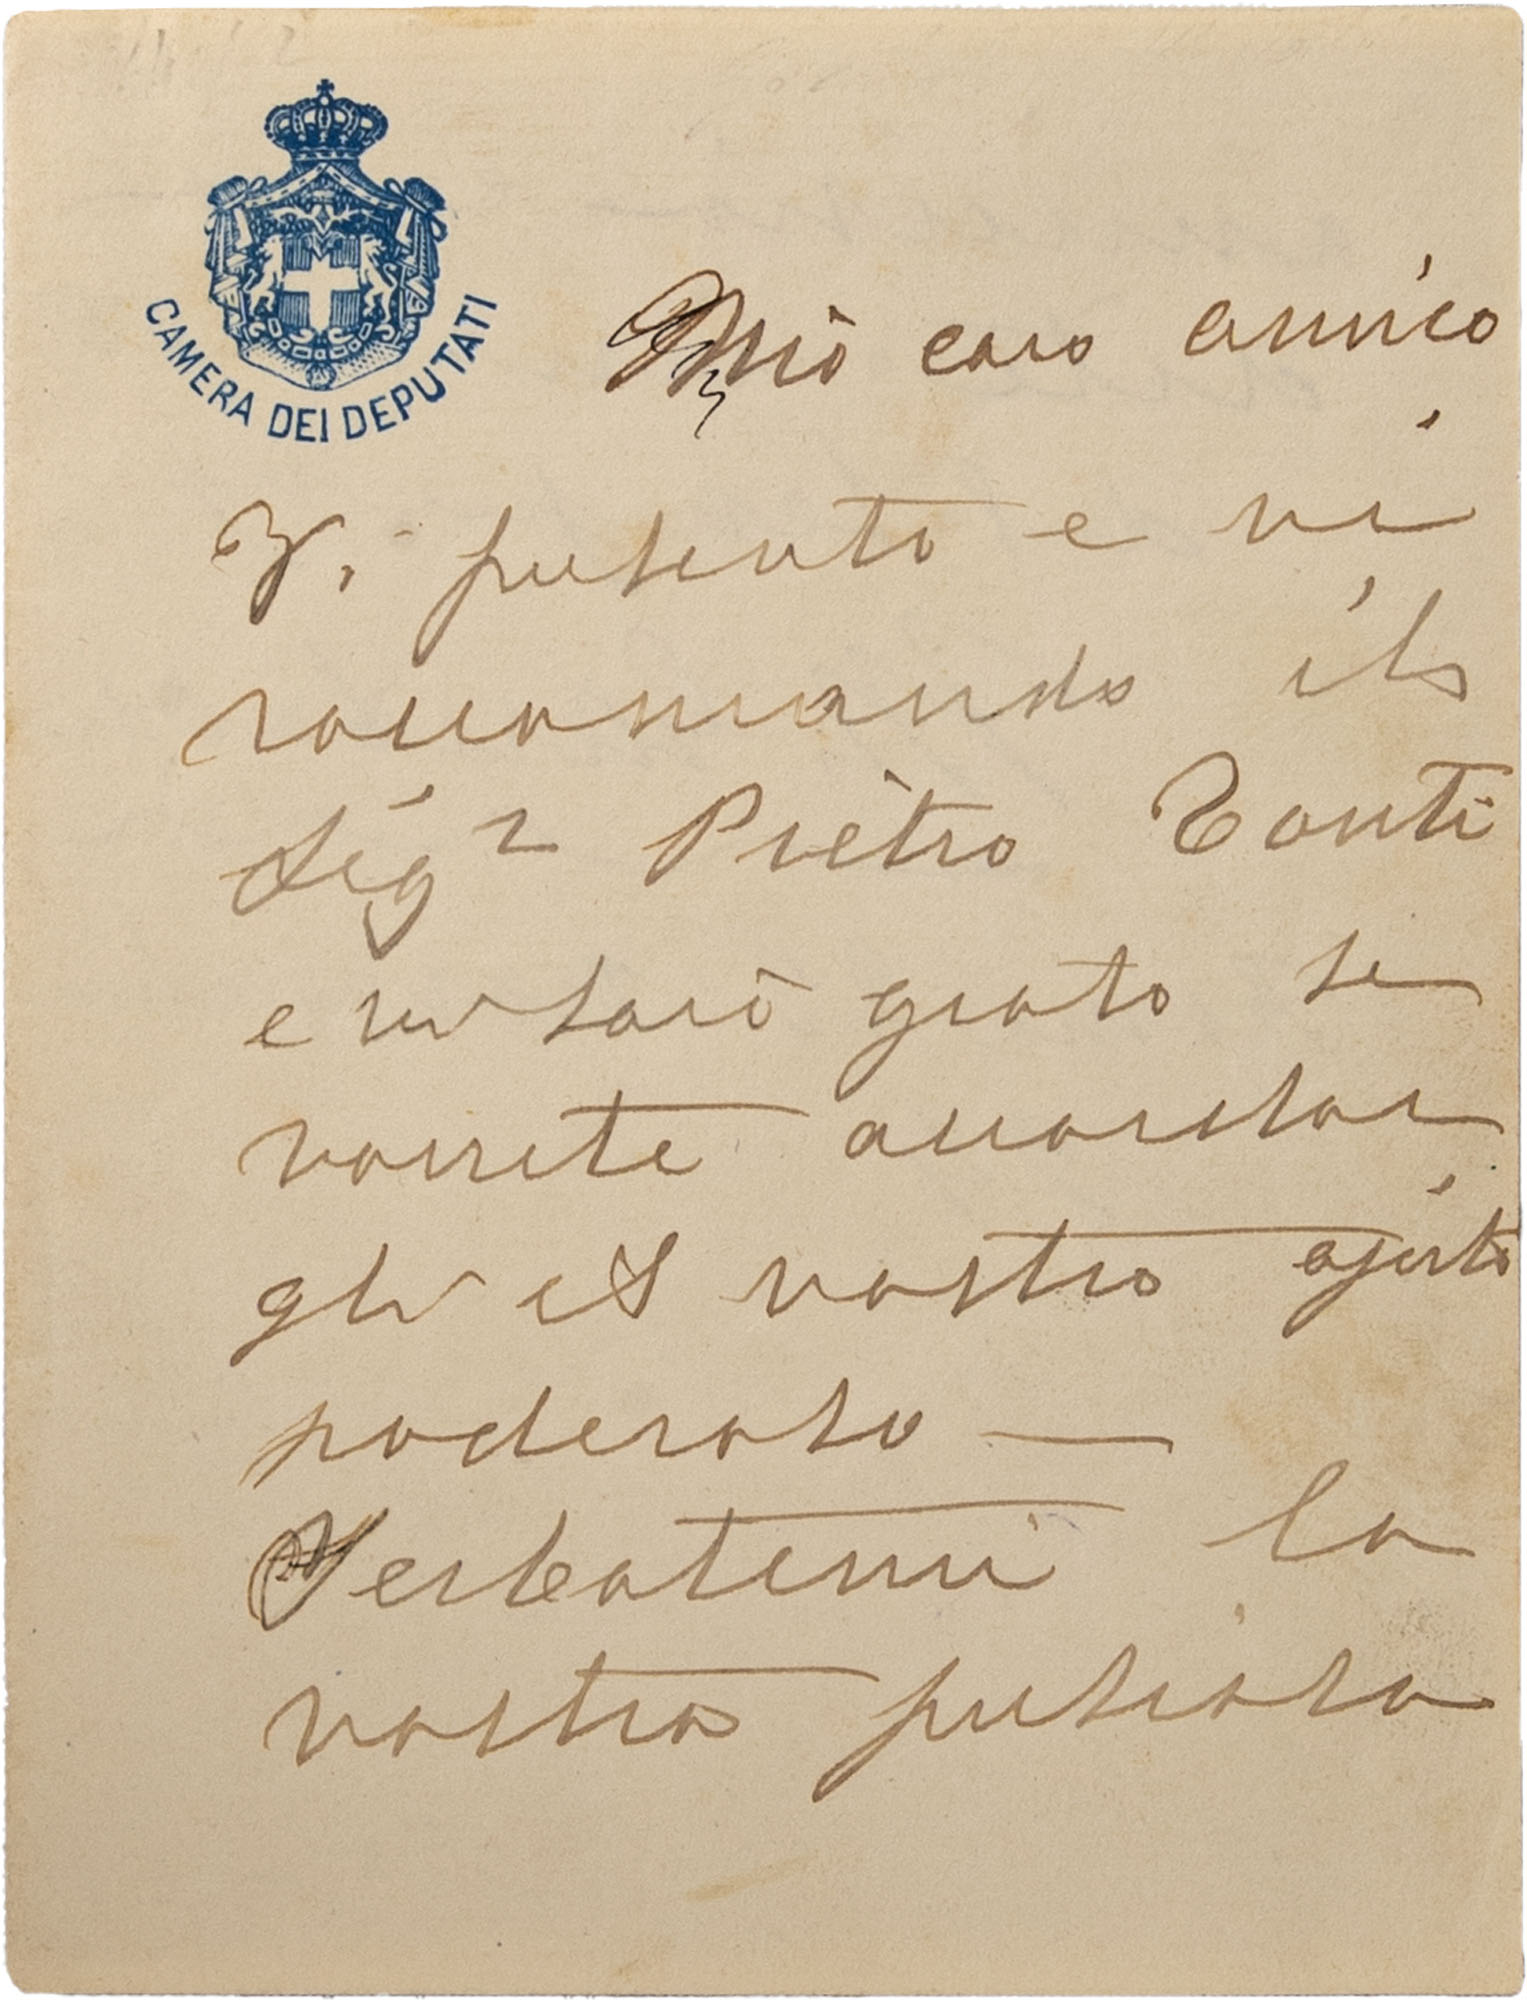 CAMERA DEI DEPUTATI
Mio caro amico
Vi presento e vi
raccomando il
Sigr Pietro Tonti
e vi sarò grato se
vorrete accordar
gli il vostro ajuto
poderoso —
Serbatemi la
vostra preziosa